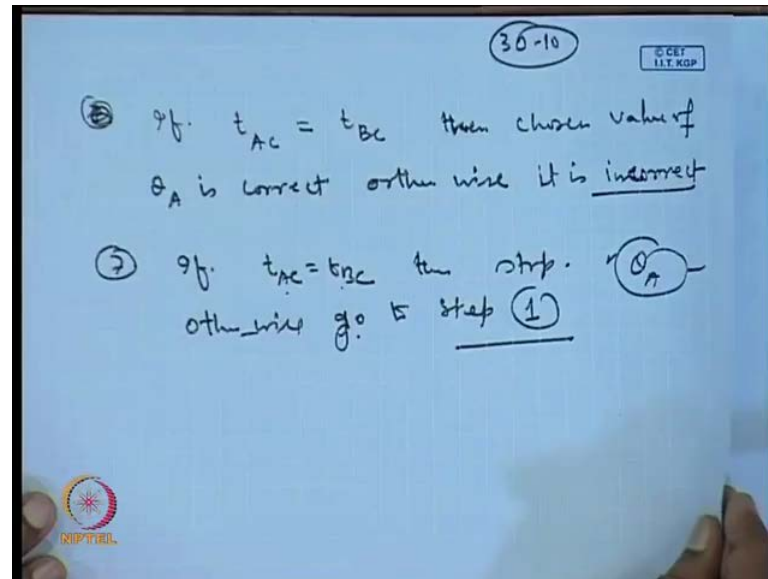 30-10
© CET
I.I.T. KGP
If. t_AC = t_BC then chosen value of
θ_A is correct otherwise it is incorrect
⑦ If. t_AC = t_BC then stop. θ_A
otherwise go to step ①
NPTEL